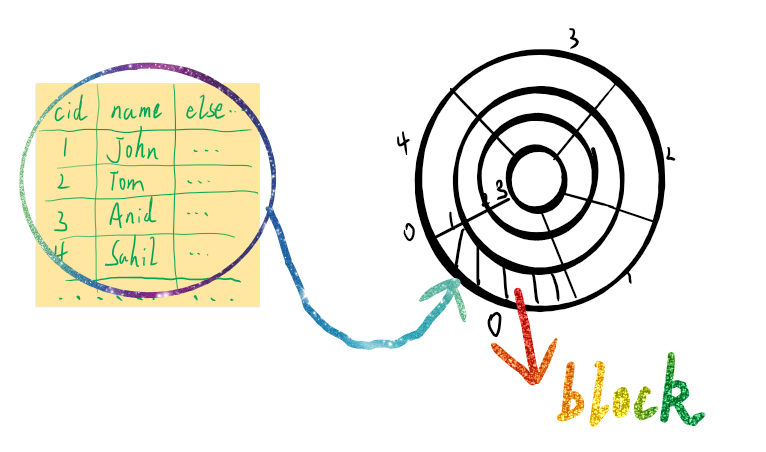 cid name else..
1 John ...
2 Tom ...
3 Anid ...
4 Sahil ...
3
4
2
3
2
1
0
1
0
block